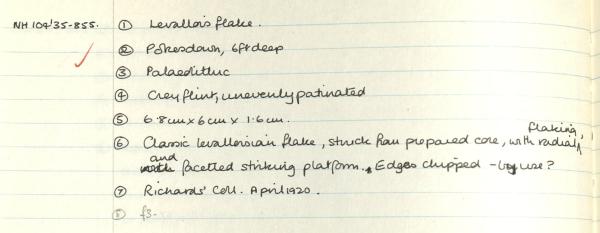 NH 104'35-855. ① Levallois flake.
② Pokesdown, 6ft deep
③ Palaeolithic
④ Grey flint, unevenly patinated
⑤ 6.8cm x 6cm x 1.6cm.
⑥ Classic Levalloisian flake, struck from prepared core, with radial flaking,
and facetted striking platform. Edges chipped - by use?
⑦ Richards' Coll. April 1920.
⑧ f3-